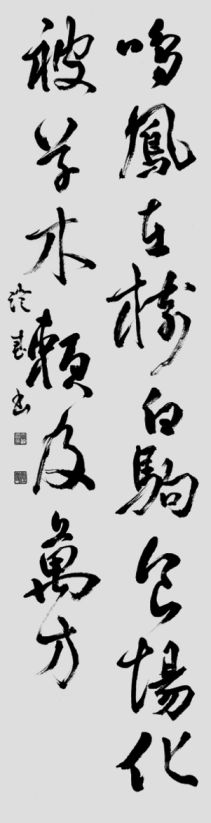 鳴鳳在樹白駒食場化
被草木賴及萬方
春書